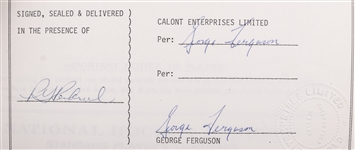 SIGNED, SEALED & DELIVERED
IN THE PRESENCE OF
CALONT ENTERPRISES LIMITED
Per: George Ferguson
Per:
George Ferguson
GEORGE FERGUSON